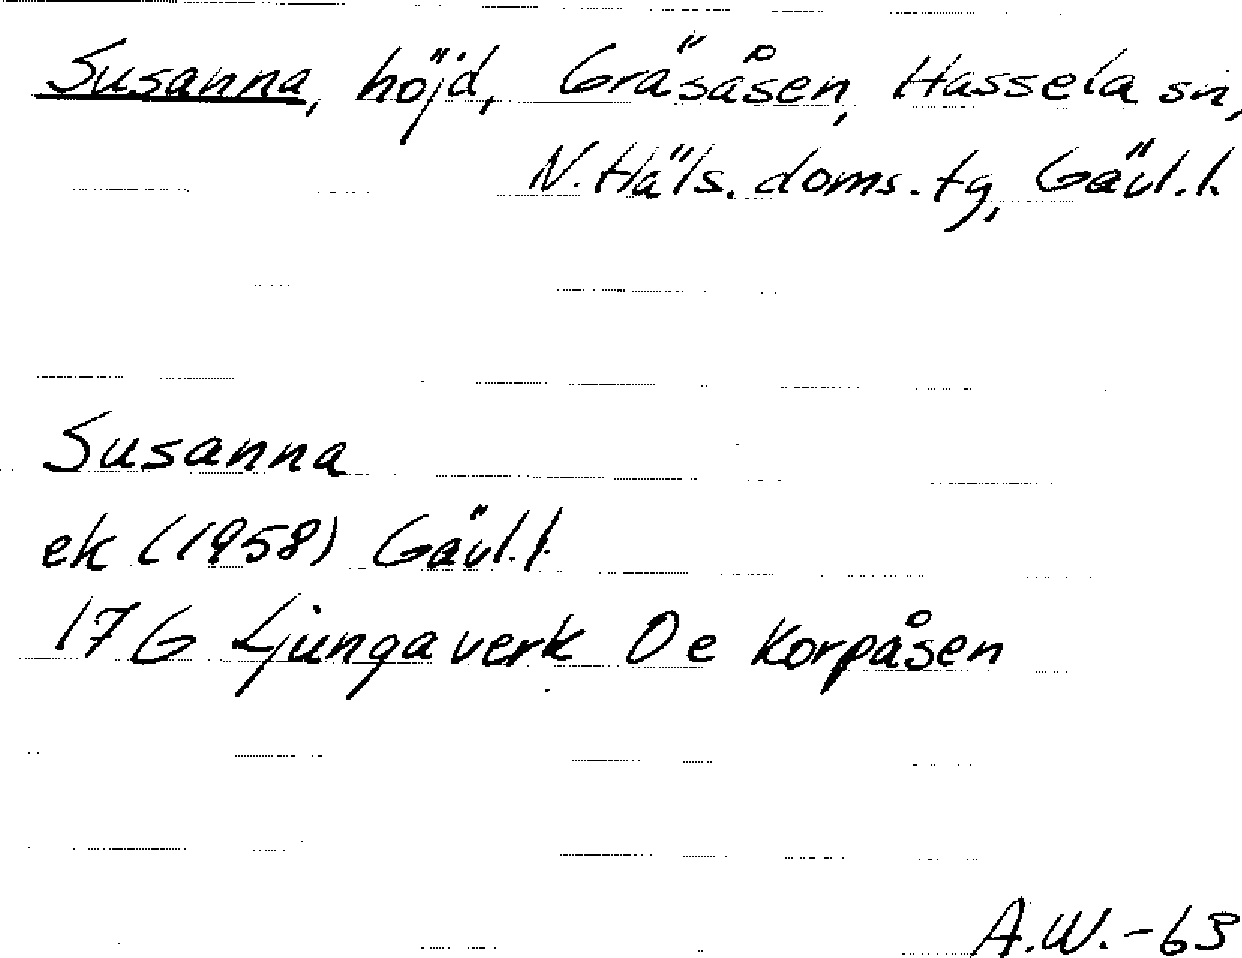 Susanna, höjd, Gräsåsen, Hassela sn,
N. Häls. doms. tg, Gävl. l.
Susanna
ek (1958) Gävl. l.
17 G Ljungaverk 0 e Korpåsen
A.W.-63